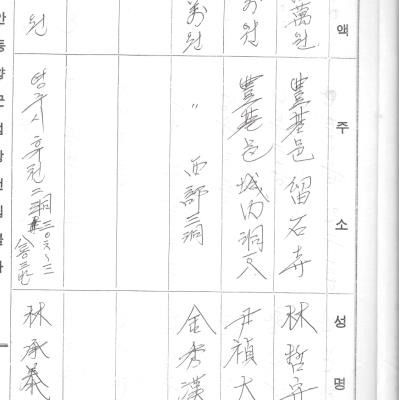 액 주소 성명
萬원 豊基邑 留石寺 林哲
萬원 豊基邑 城内洞 尹禎大
萬원 〃 西部三洞 金秀漢
원 영주시 휴천二洞 三○六-三 林承